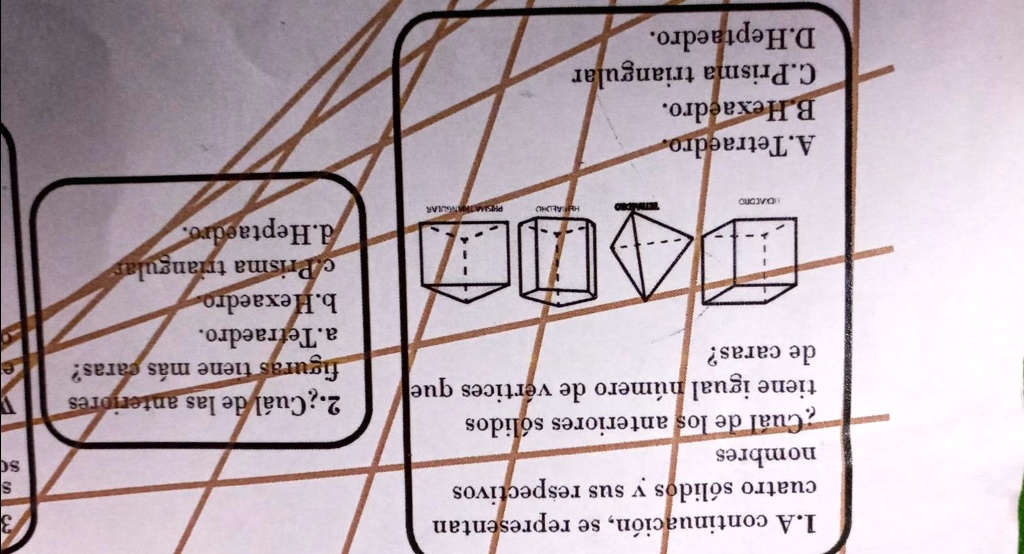 1.A continuación, se representan
cuatro sólidos y sus respectivos
nombres
¿Cuál de los anteriores sólidos
tiene igual número de vértices que
de caras?
HEXAEDRO
TETRAEDRO
HEPTAEDRO
PRISMA TRIANGULAR
A.Tetraedro.
B.Hexaedro.
C.Prisma triangular
D.Heptaedro.
2.¿Cuál de las anteriores
figuras tiene más caras?
a.Tetraedro.
b.Hexaedro.
c.Prisma triangular
d.Heptaedro.
3